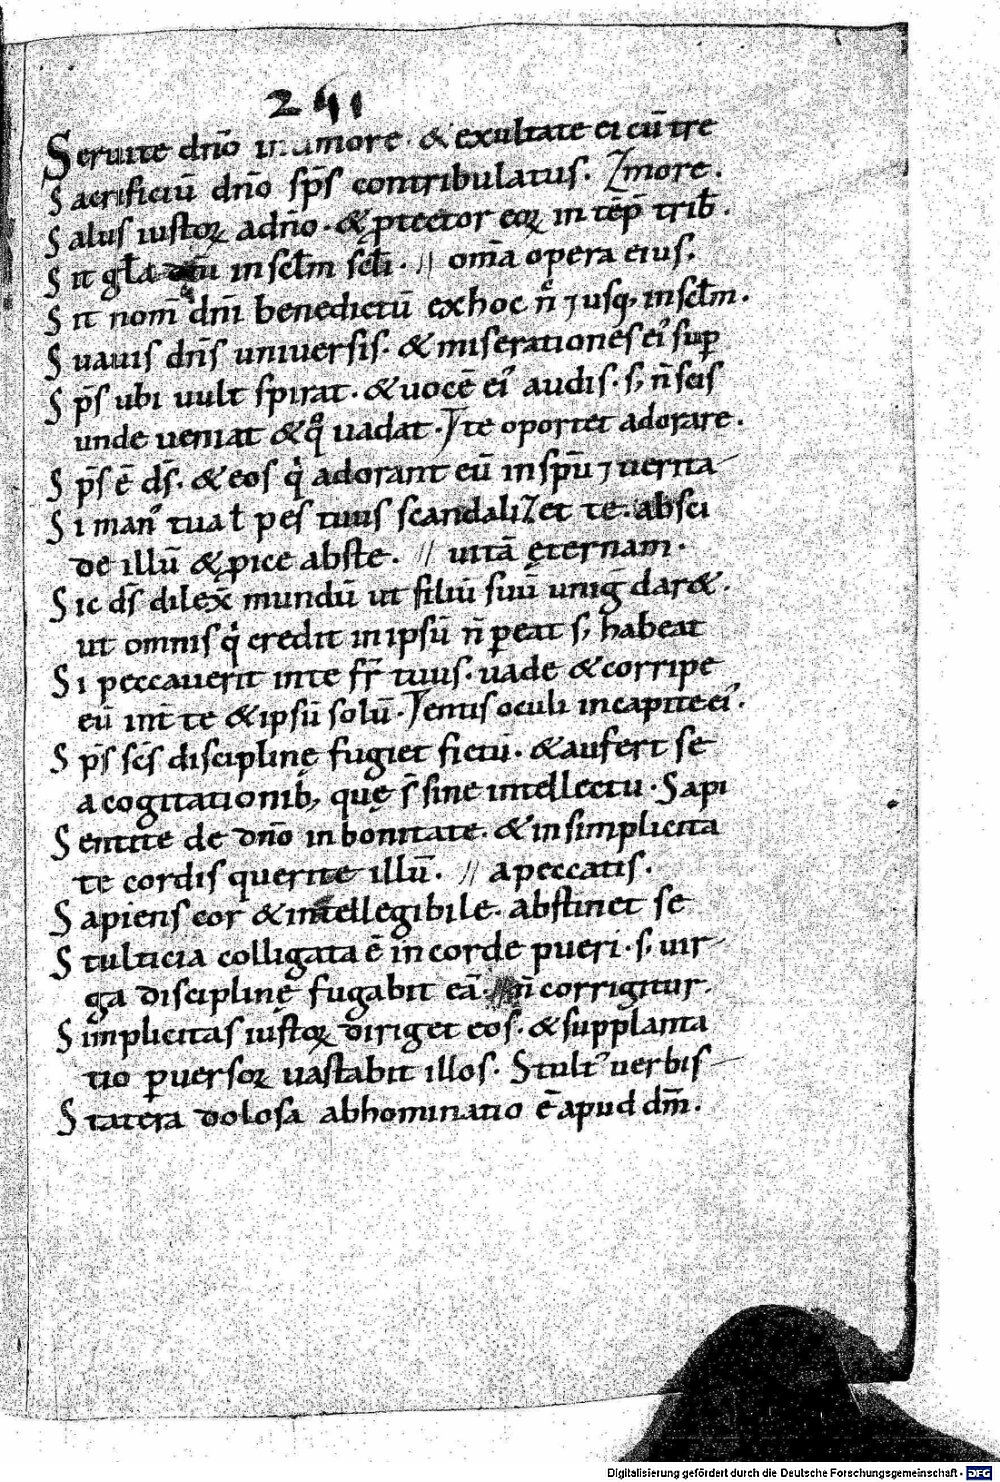 241
Seruite dño in amore · & exultate ei cū tre
Sacrificiū dño sp̄s contribulatus. ⁊more.
Salus iustoꝝ a dño · & ꝓtector eoꝝ in tēp̄ trib̄.
Sit gl̄a dñi in sc̄l̄m sc̄l̄i · // om̄a opera eius.
Sit nom̄ dñi benedictū ex hoc ñc ⁊ usq; in sc̄l̄m.
Suauis dñs uniuersis · & miserationes ei᾿ suꝑ
Sp̄s ubi uult spirat · & uocē ei᾿ audis · s; ñ scis
unde ueniat & qͦ uadat · // te oportet adorare.
Sp̄s ē d̄s · & eos qͥ adorant eū in sp̄u ⁊ uerita
Si man᾿ tua ƚ pes tuus scandalizet te · absci
de illū & ꝓice abs te. // uitā ęternam.
Sic d̄s dilex̄ mundū ut filiū suū unig̅ dar&.
ut omnis qͥ credit in ipsū ñ ꝑeat s; habeat
Si peccauerit in te fr̄ tuus · uade & corripe
eū int̄ te & ipsū solū · // entis oculi in capite ei᾿.
Sp̄s sc̄s disciplinę fugiet fictū · & aufert se
a cogitationib; quę s̄ sine intellectu · Sapi
Sentite de dño in bonitate · & in simplicita
te cordis querite illū. // a peccatis.
Sapiens cor & intellegibile · abstinet se
Stulticia colligata ē in corde pueri · s; uir
ga disciplinę fugabit eā · // ñ corrigitur.
Simplicitas iustoꝝ diriget eos · & supplanta
tio ꝑuersoꝝ uastabit illos · Stult᾿ uerbis
Statera dolosa abhominatio ē apud dm̄.
Digitalisierung gefördert durch die Deutsche Forschungsgemeinschaft - DFG